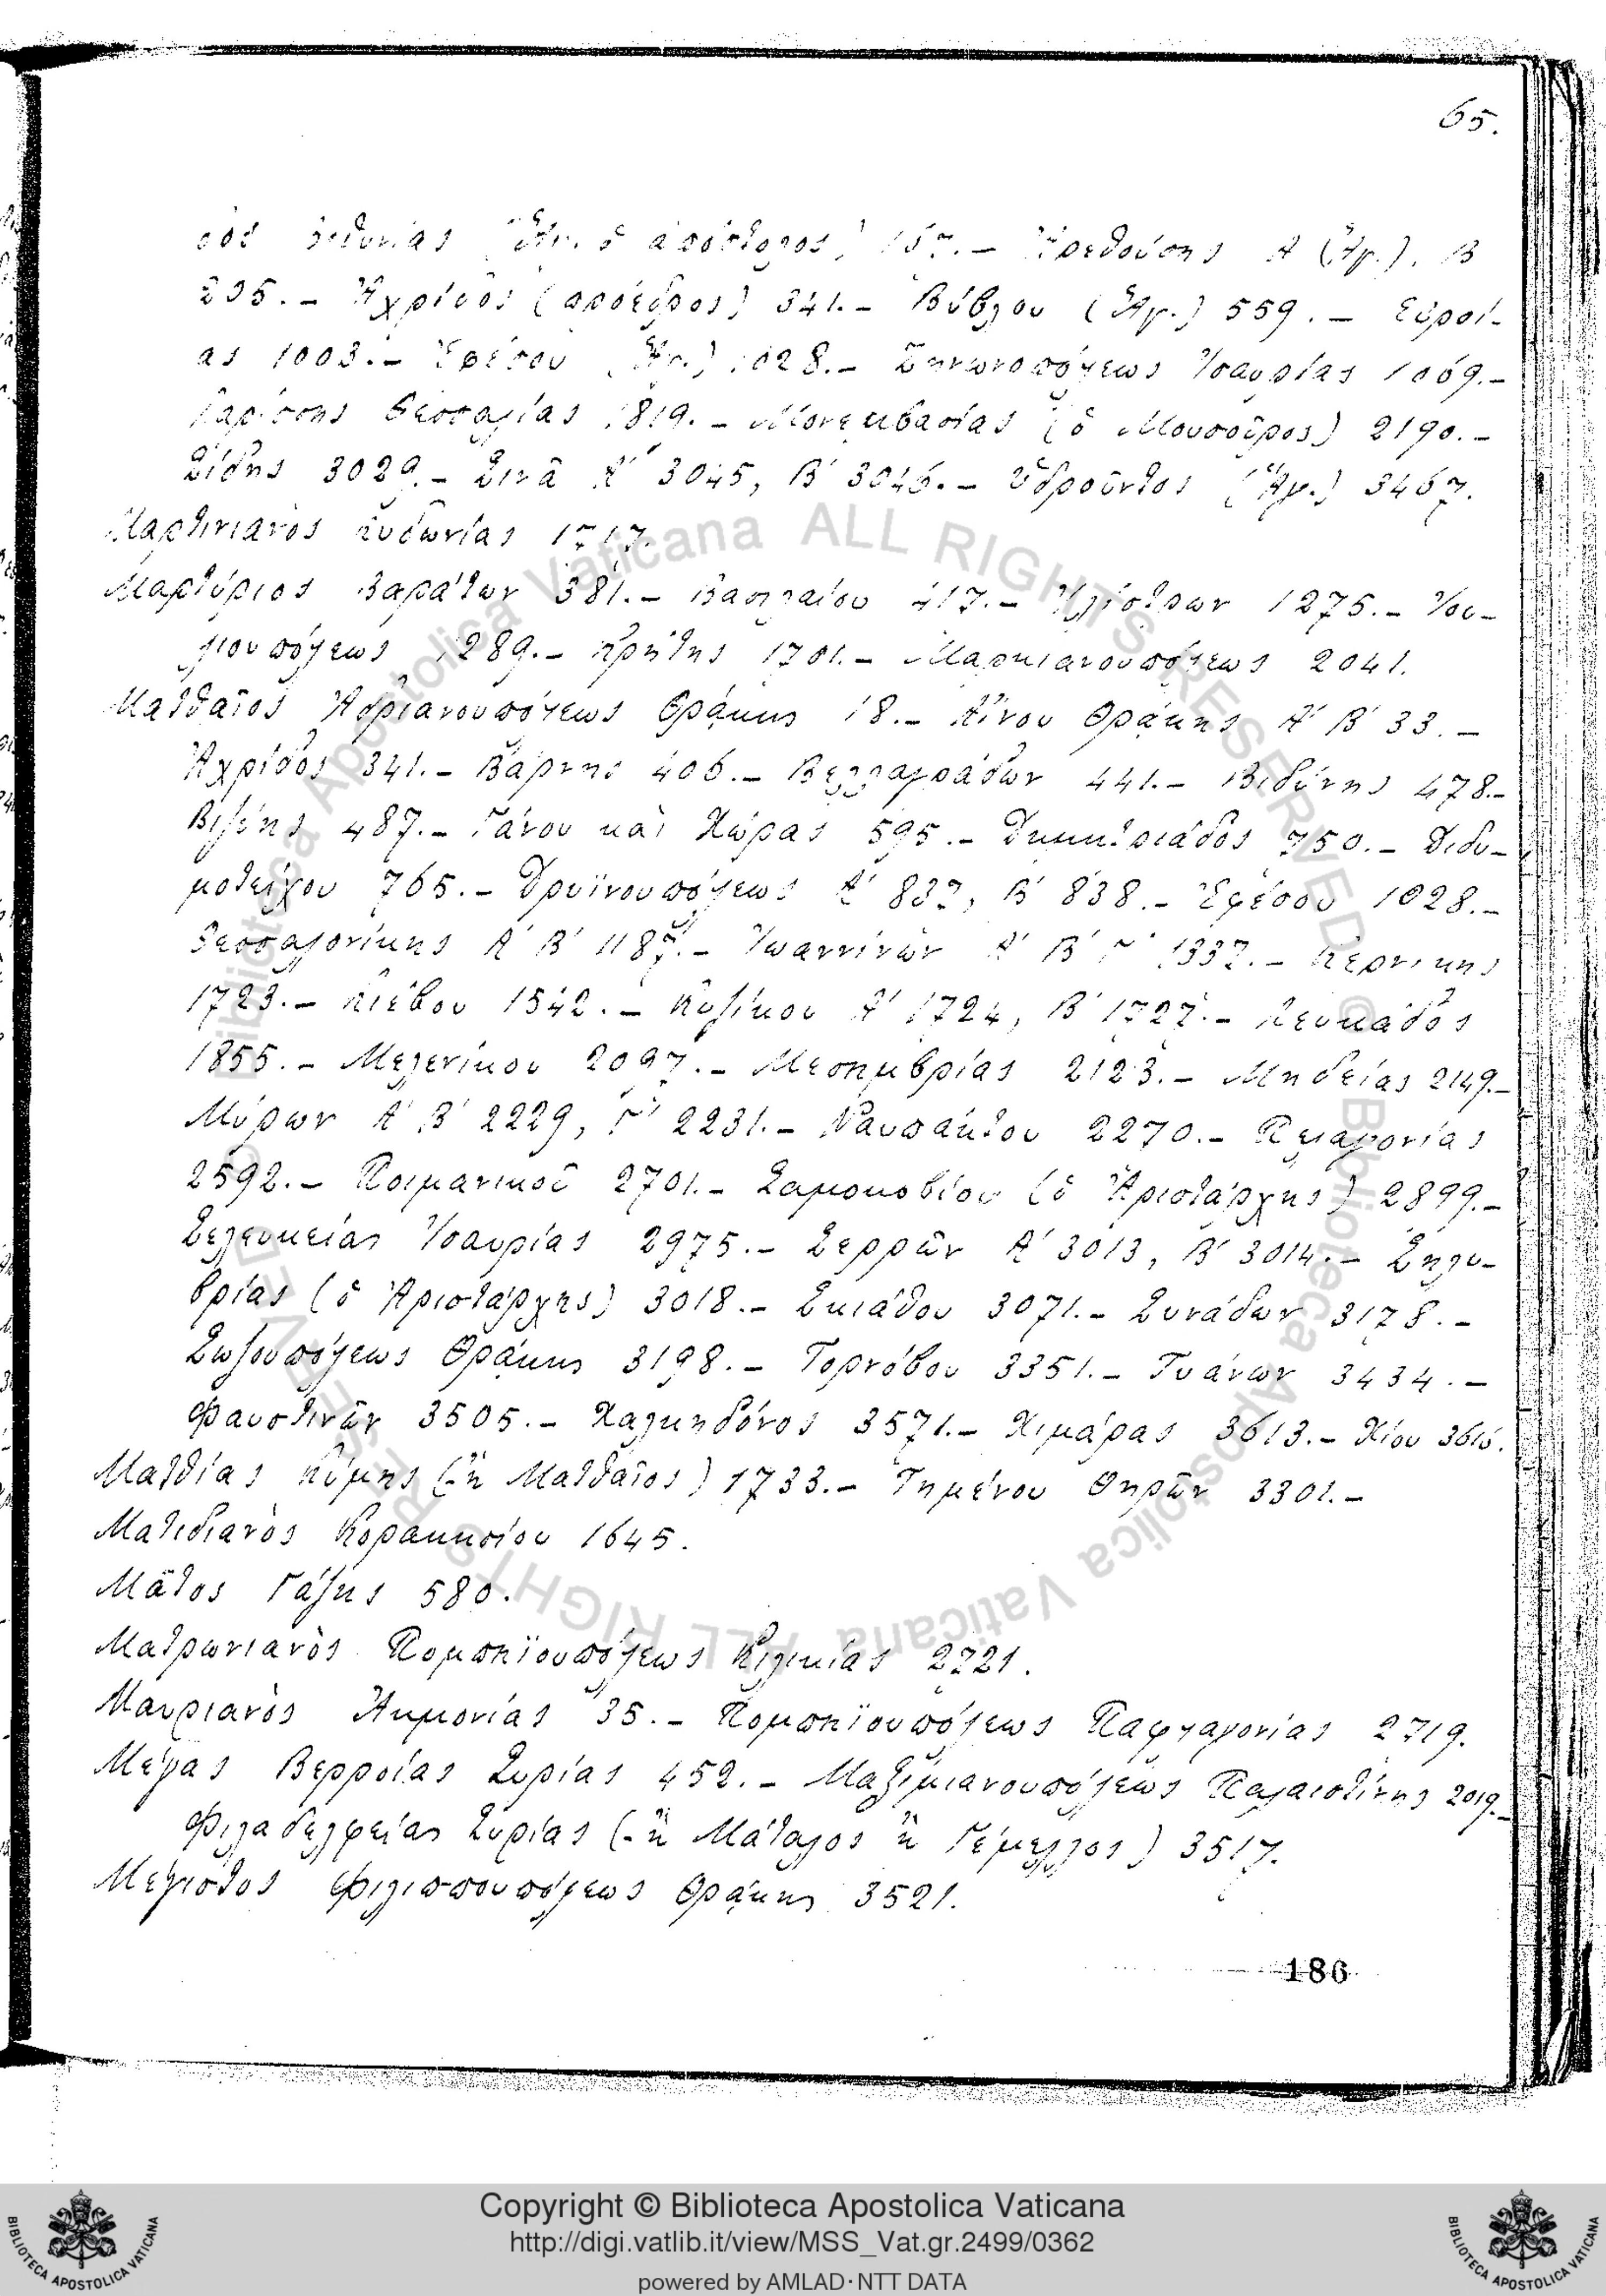 65.
ἀπόστολος) 157.– Ἀρεθούσης Α (Ἅγ.). Β
235.– Ἀχρίδος (πρόεδρος) 341.– Βύβλου (Ἅγ.) 559.– Εὐροί-
ας 1003.– Ἐφέσου (Ἅγ.) 1028.– Ζηνωνοπόλεως Ἰσαυρίας 1069.–
Λαρίσσης Θεσσαλίας 1819.– Μονεμβασίας (ὁ Μουσοῦρος) 2190.–
Σίδης 3029.– Σινᾶ Α΄ 3045, Β΄ 3046.– Ὑδροῦντος (Ἅγ.) 3467.
Μαρτινιανὸς Κυδωνίας 1717.
Μαρτύριος Βαράτων 381.– 417.– Ἰλίστρων 1275.– Ἰου-
λιουπόλεως 1289.– Κρήτης 1701.– Μαρκιανουπόλεως 2041.
Ματθαῖος Ἀδριανουπόλεως Θρᾴκης 18.– Αἴνου Θρᾴκης Α΄ Β΄ 33.–
Ἀχρίδος 341.– Βάρνης 406.– Βελλαγράδων 441.– Βιδύνης 478.–
Βιζύης 487.– Γάνου καὶ Χώρας 595.– Δημητριάδος 750.– Διδυ-
μοτείχου 765.– Δρυϊνουπόλεως Α΄ 832, Β΄ 838.– Ἐφέσου 1028.–
Θεσσαλονίκης Α΄ Β΄ 1187.– Ἰωαννίνων Α΄ Β΄ Γ΄ 1337.– Κερνίκης
1723.– Κιέβου 1542.– Κυζίκου Α΄ 1724, Β΄ 1727.– Λευκάδος
1855.– Μελενίκου 2097.– Μεσημβρίας 2123.– Μηδείας 2149.–
Μύρων Α΄ Β΄ 2229, Γ΄ 2231.– Ναυπάκτου 2270.– Πελαγονίας
2592.– Ποιμανικοῦ 2701.– Σαμοκοβίου (ὁ Ἀριστάρχης) 2899.–
Σελευκείας Ἰσαυρίας 2975.– Σερρῶν Α΄ 3013, Β΄ 3014.– Σηλυ-
βρίας (ὁ Ἀριστάρχης) 3018.– Σκιάθου 3071.– Συνάδων 3178.–
Σωζουπόλεως Θρᾴκης 3198.– Τορνόβου 3351.– Τυάνων 3434.–
Φαυστινῶν 3505.– Χαλκηδόνος 3571.– Χιμάρας 3613.– Χίου 3616.
Ματθίας Κύμης (– ἢ Ματθαῖος) 1733.– Τημένου Θηρῶν 3301.–
Ματιδιανὸς Κορακησίου 1645.
Μᾶτος Γάζης 580.
Ματρωνιανὸς Πομπηϊουπόλεως Κιλικίας 2721.
Μαυριανὸς Ἀκμονίας 35.– Πομπηϊουπόλεως Παφλαγονίας 2719.
Μέγας Βερροίας Συρίας 452.– Μαξιμιανουπόλεως Παλαιστίνης 2019.–
Φιλαδελφείας Συρίας (– ἢ Μάταλος ἢ Γέμελλος) 3517.
Μέγιστος Φιλιππουπόλεως Θρᾴκης 3521.
186
© Biblioteca Apostolica Vaticana ALL RIGHTS RESERVED
Copyright © Biblioteca Apostolica Vaticana
http://digi.vatlib.it/view/MSS_Vat.gr.2499/0362
powered by AMLAD·NTT DATA
BIBLIOTECA APOSTOLICA VATICANA
BIBLIOTECA APOSTOLICA VATICANA